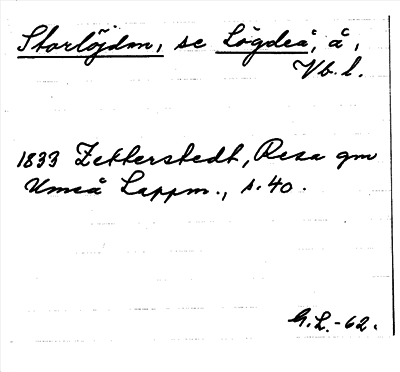 Storlöjdm, se Lögdeå, å,
Vb. l.
1833 Zetterstedt, Resa gm
Umeå Lappm., s. 40.
G.L.-62.